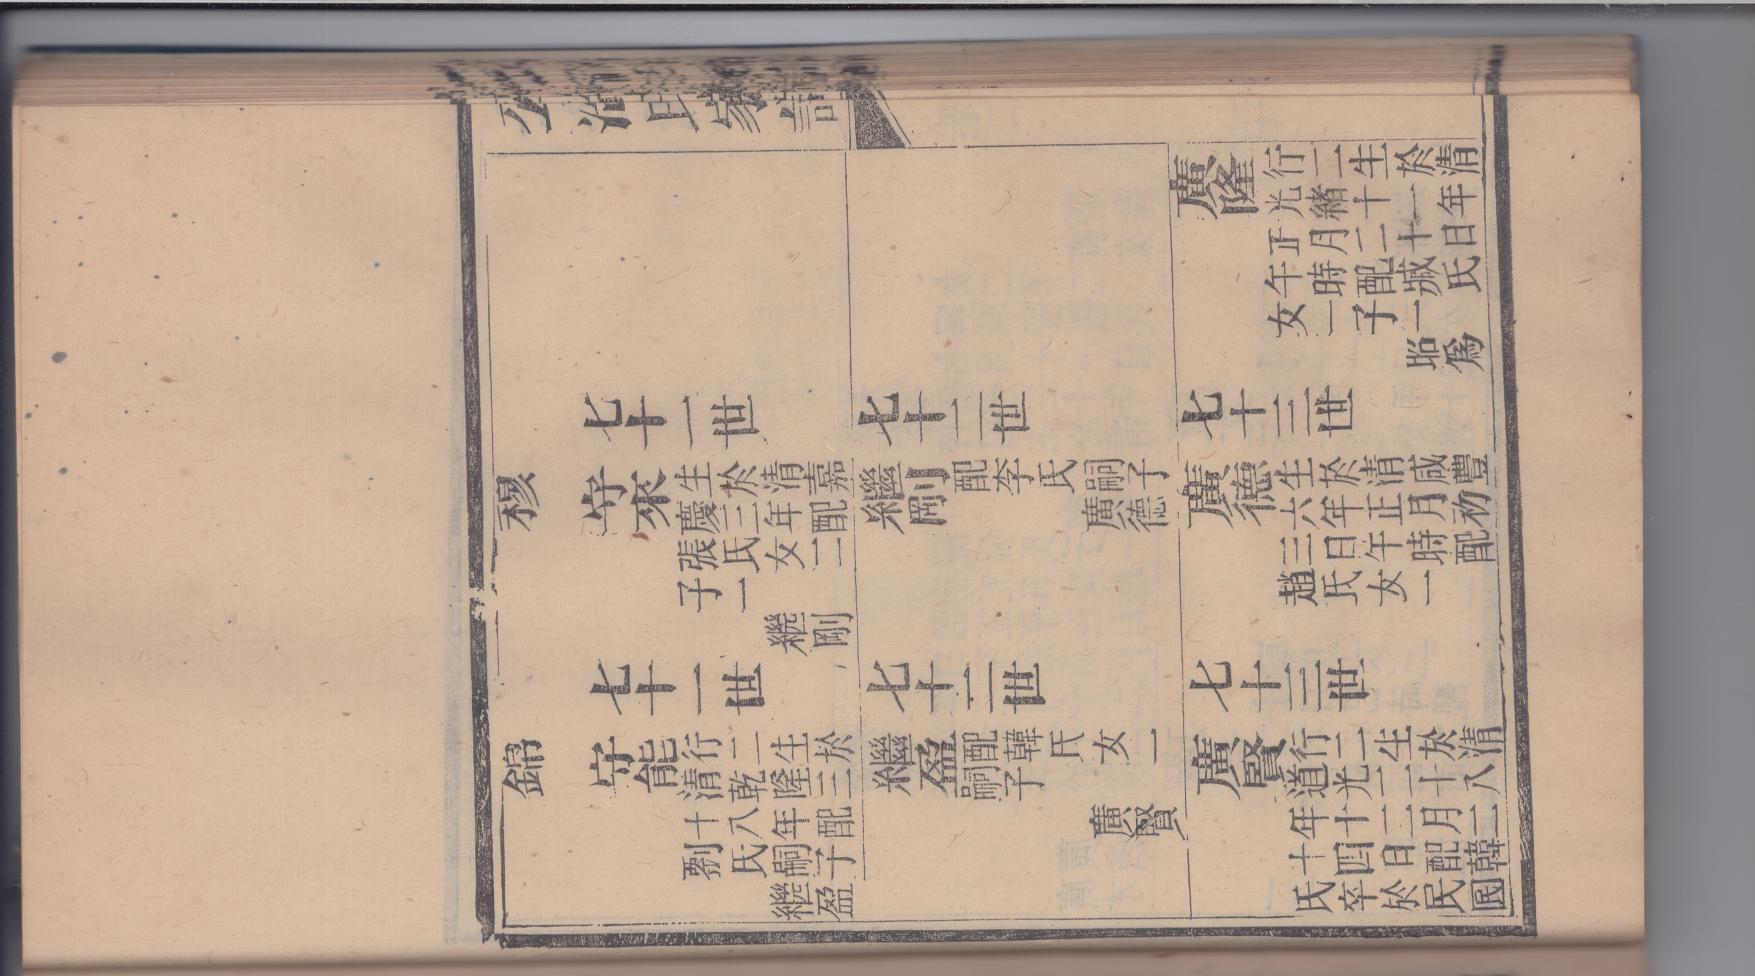 公冶氏家譜
廣隆
行二生於清
光緒十一年
正月二十日
午時配臧氏
女一子一
昭為
七十一世
七十二世
七十三世
穆
守來
生於清嘉
慶三年配
張氏女二
子一
繼剛
繼剛
配李氏
嗣子
廣德
廣德
生於清咸豐
六年正月初
三日午時配
趙氏女一
七十一世
七十二世
七十三世
錦
守能
行二生於
清乾隆三
十八年配
劉氏嗣子
繼盈
繼盈
配韓氏女一
嗣子
廣賢
廣賢
行二生於清
道光二十八
年十二月二
十四日配韓
氏卒於民國